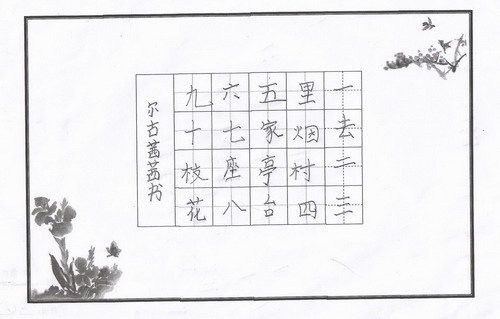 一去二三
里烟村四
五家亭台
六七座八
九十枝花
尔古茜茜书